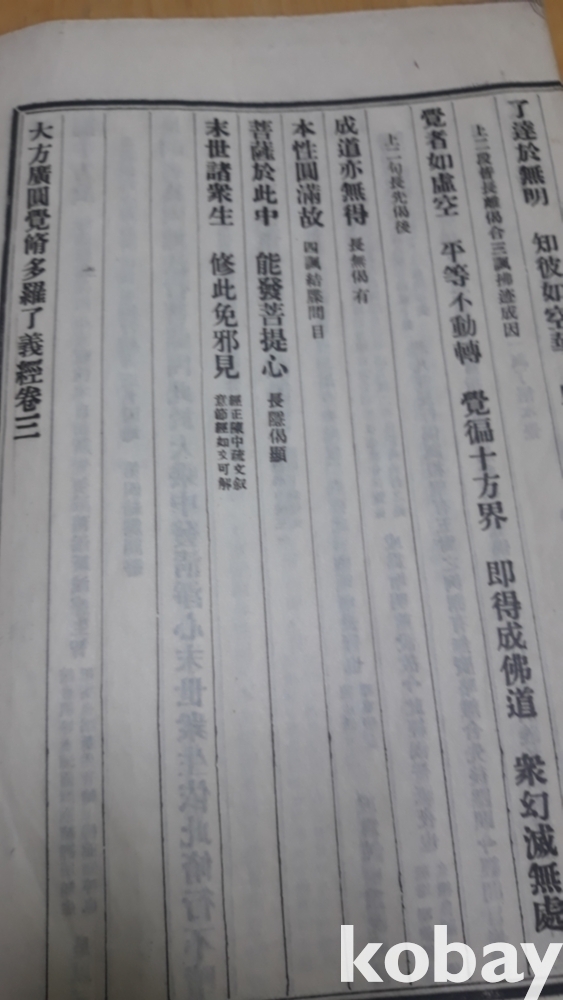 了達於無明　知彼如空
上二段皆長離偈合三諷佛遼成因
覺者如虛空　平等不動轉　覺徧十方界　即得成佛道　衆幻滅無處
上二句長先偈後
成道亦無得　長無偈有
本性圓滿故　四諷結牒問目
菩薩於此中　能發菩提心　長隱偈顯
末世諸衆生　修此免邪見　經正陳中疏文叙
意節經如文可解
大方廣圓覺脩多羅了義經卷三
kobay